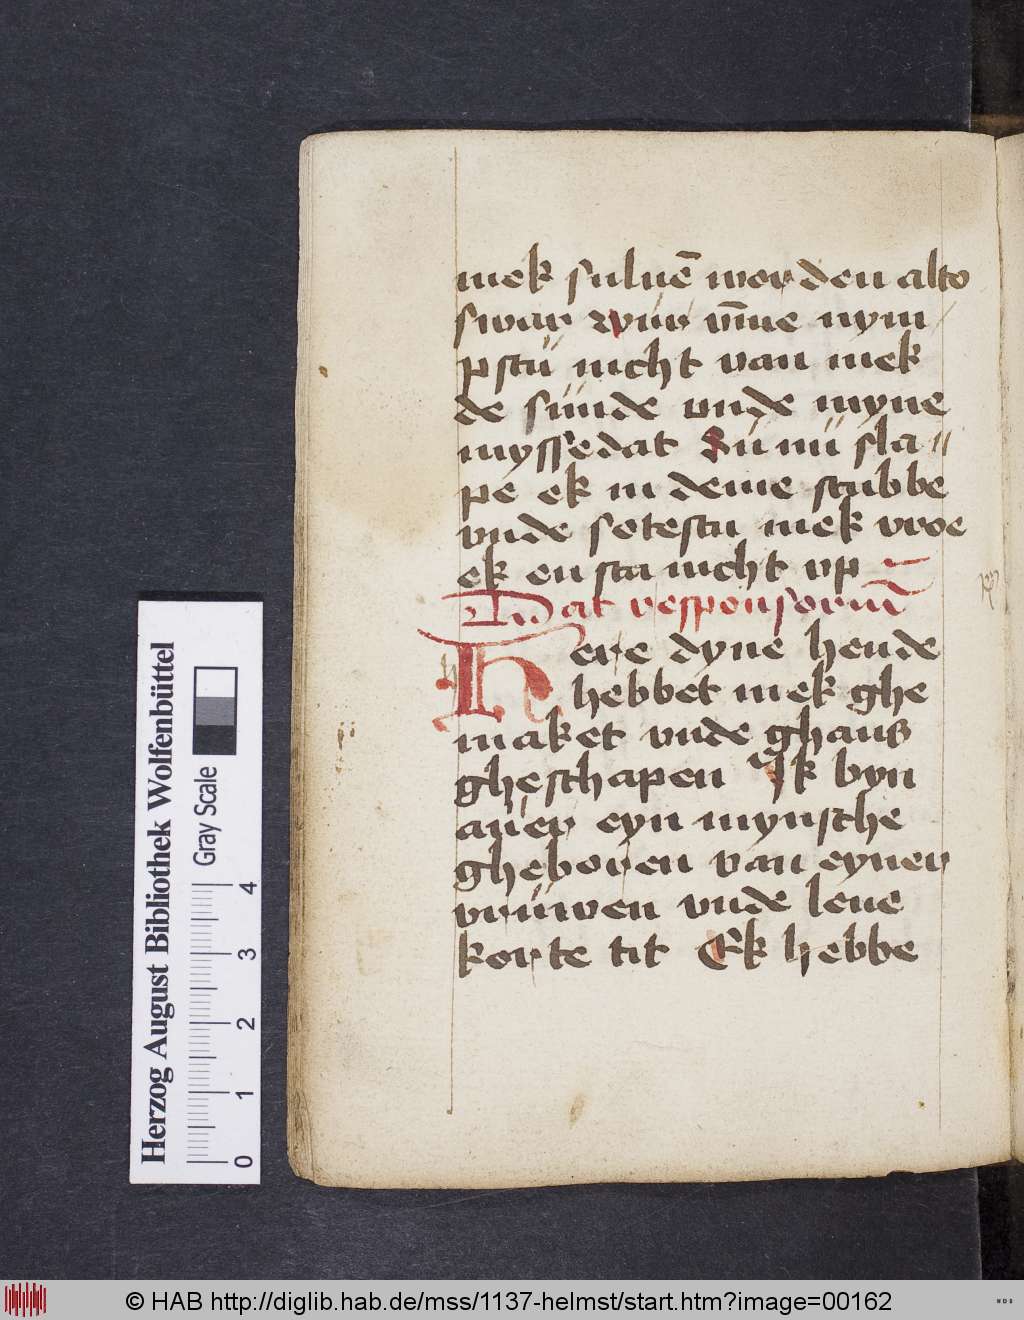 mek suluē wor den alto
swar wur v̄me nym
pstu nicht van mek
de sunde vnde myne
myssedat Su nu sla〃
pe ek in deme stubbe
vnde sotestu mek vroe
ek en sta nicht vp
Dat responsoriū
Here dyne hende
hebbet mek ghe
maket vnde ghans
gheschapen Ik byn
auer eyn mynsche
gheboren van eyner
vruwen vnde leue
korte tit Ek hebbe
Herzog August Bibliothek Wolfenbüttel
Gray Scale
0 1 2 3 4
© HAB http://diglib.hab.de/mss/1137-helmst/start.htm?image=00162